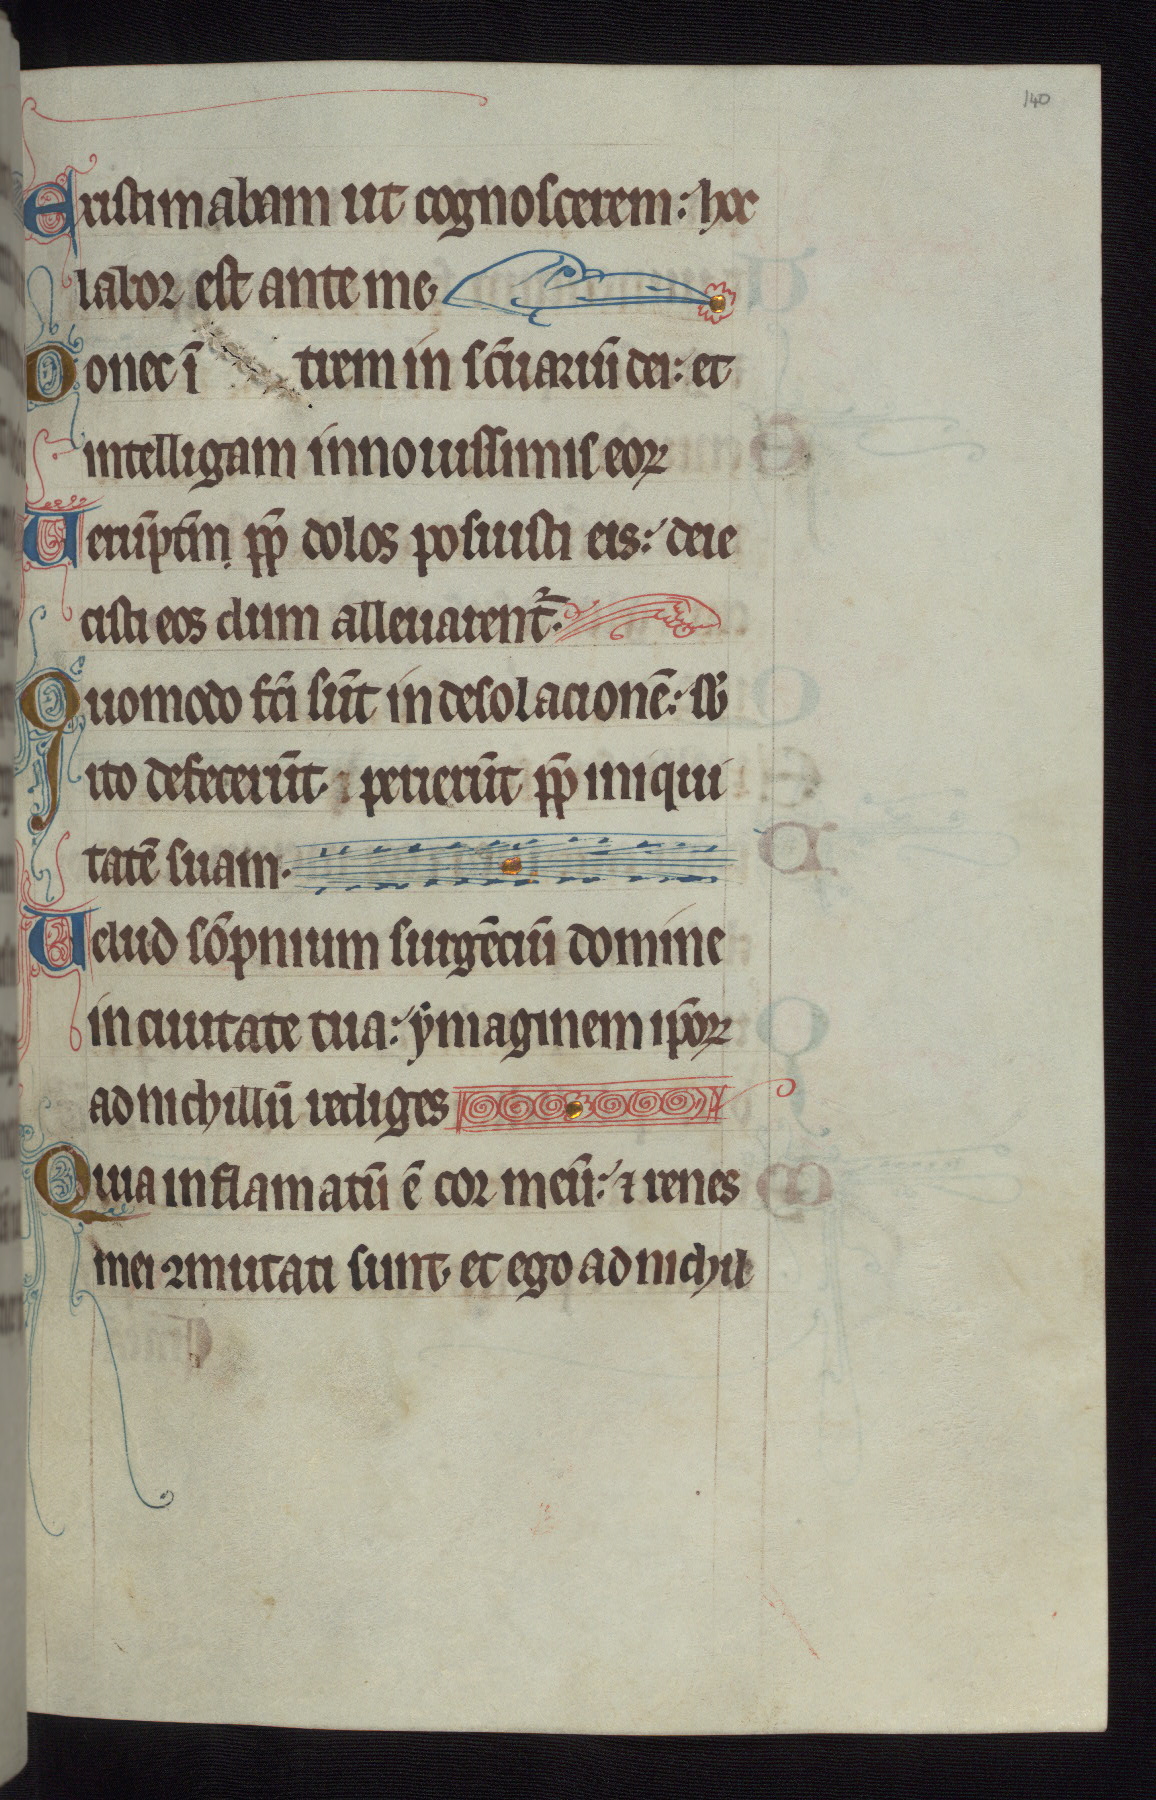 140
Existimabam ut cognoscerem: hoc
labor est ante me
Donec ī trem in sc̄uariū dei: et
intelligam in nouissimis eoꝝ
Uerūptm̄ pp̄ dolos posuisti eis: deie
cisti eos dum alleuarent᷑.
Quomodo fc̄i sūt in desolacionē: sb̄
ito defecerūt perierūt pp̄ iniqui
tatē suam.
Uelud sōpnium surgēciū domine
in ciuitate tua: ẏmaginem ip̄oꝝ
ad nichillū rediges
Quia inflamatū ē cor meū: ⁊ renes
mei ꝯmutati sunt et ego ad nichil